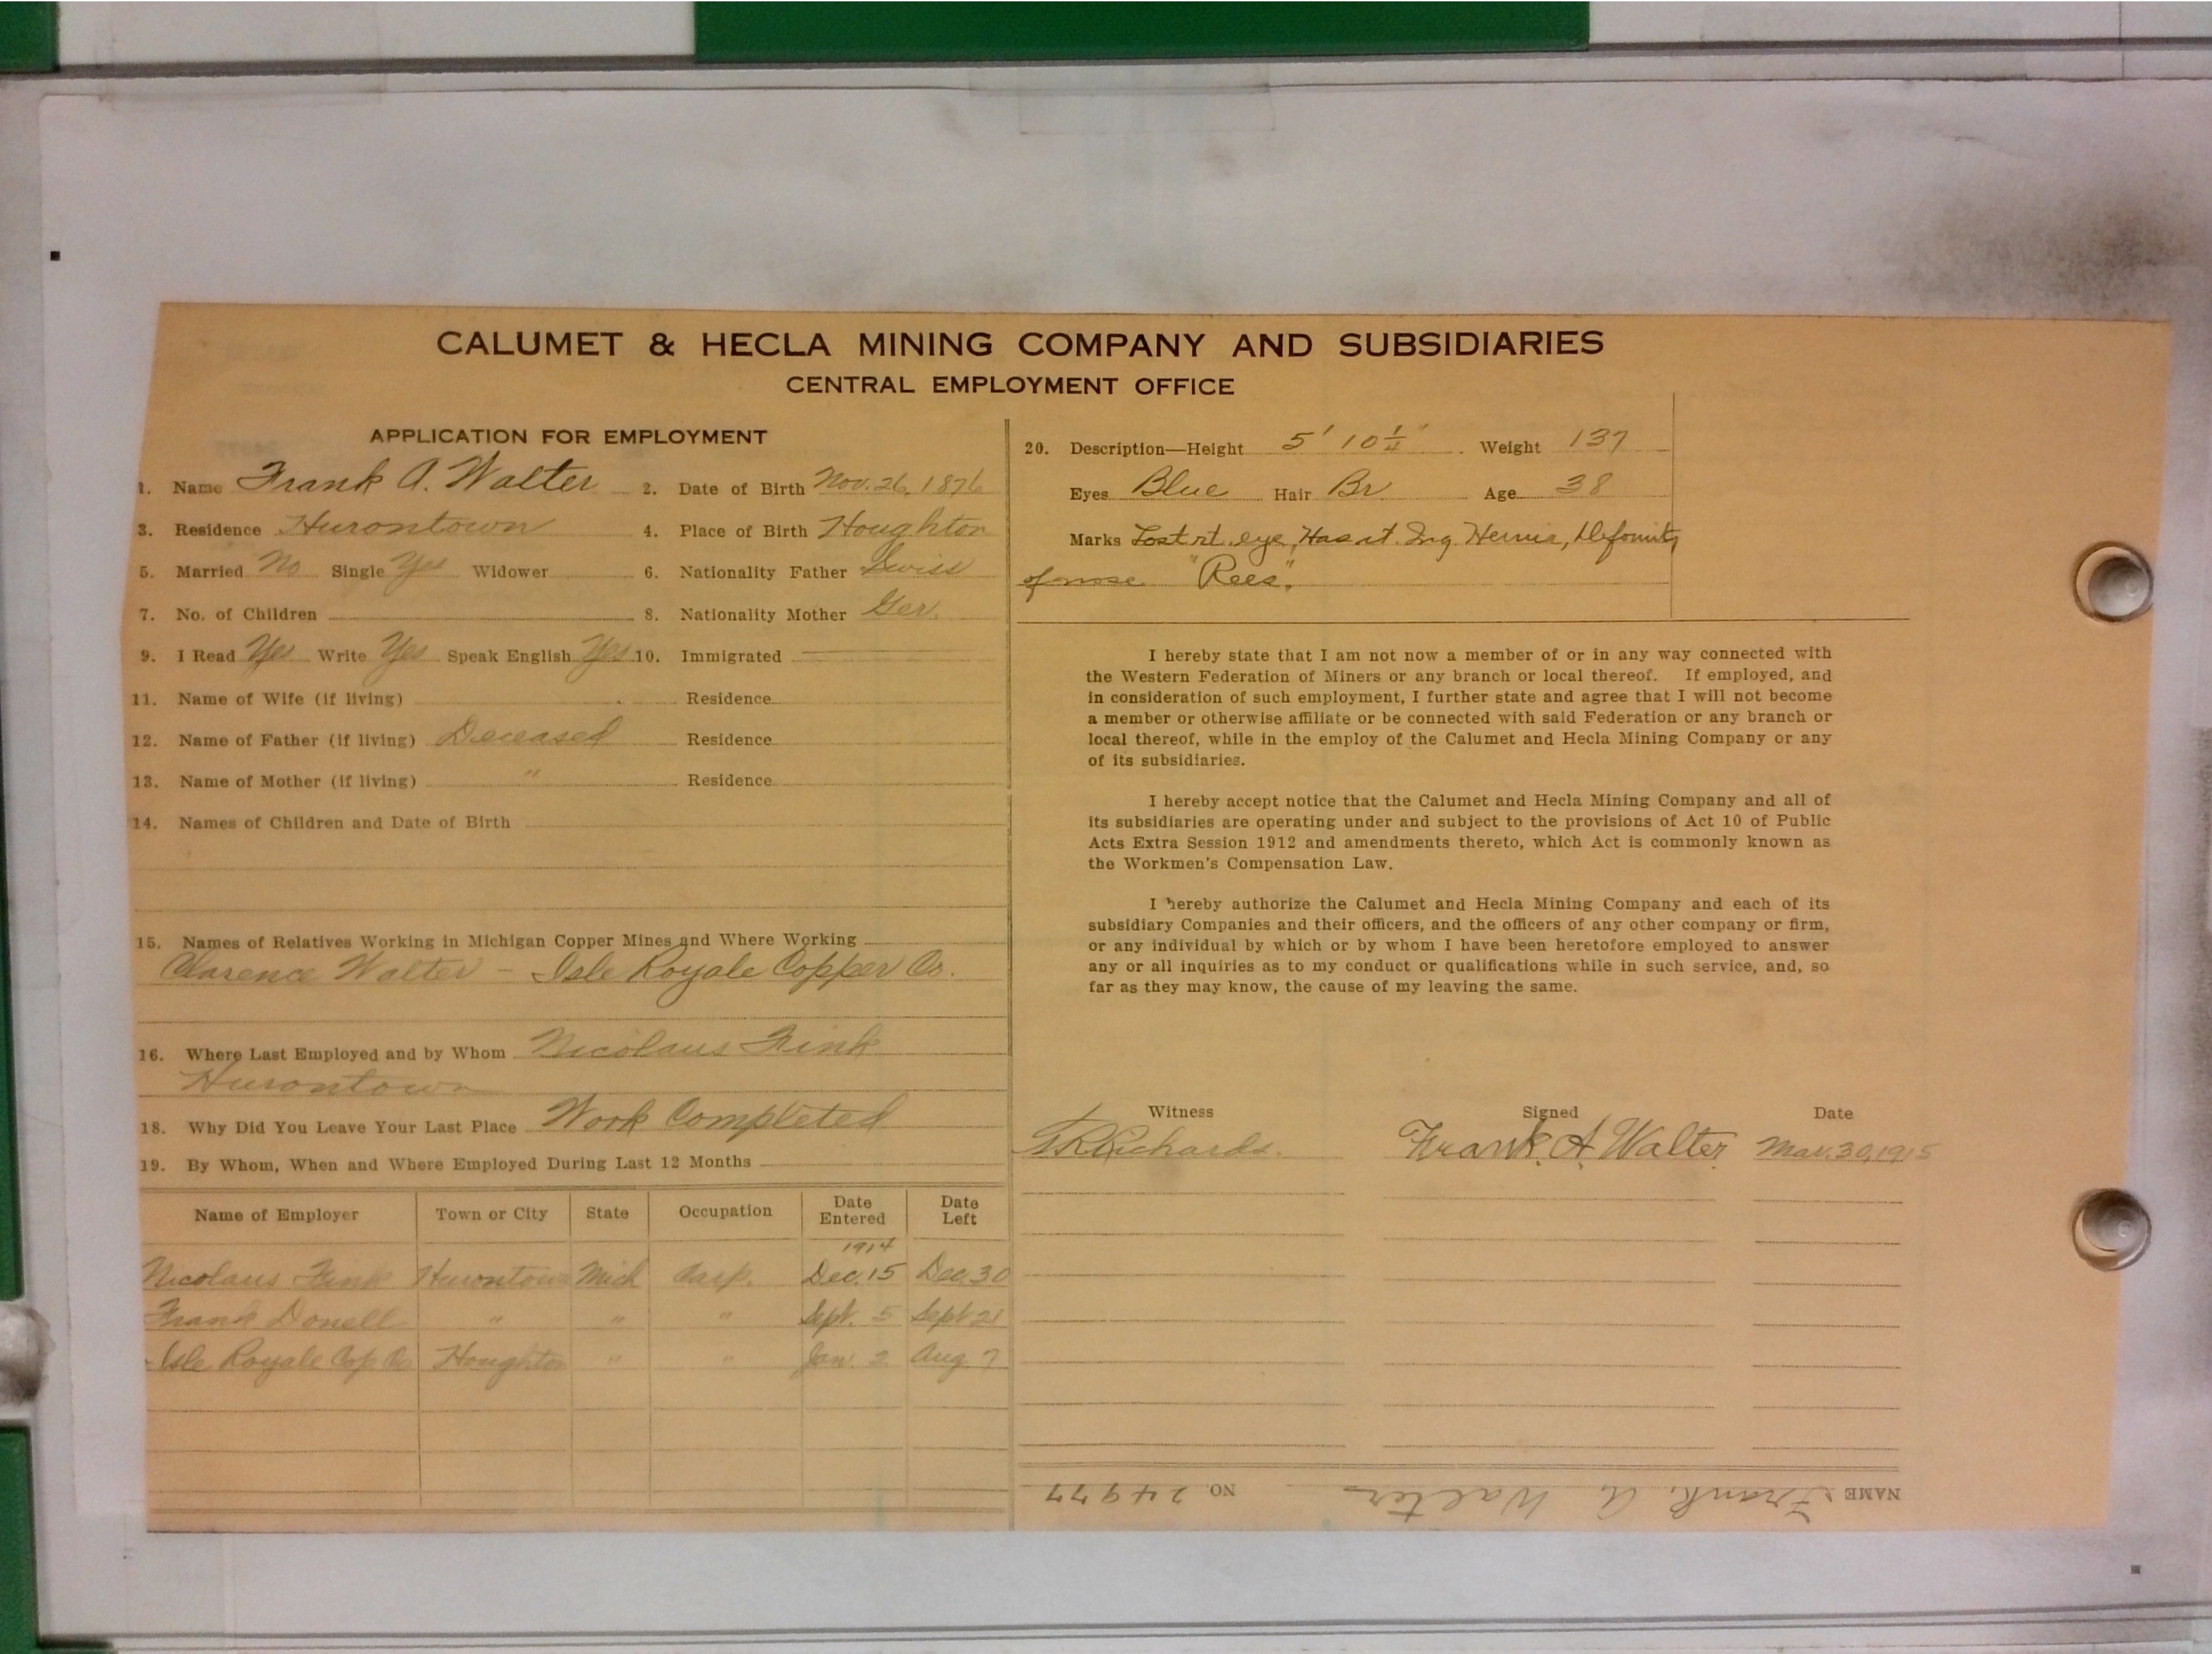 CALUMET & HECLA MINING COMPANY AND SUBSIDIARIES
CENTRAL EMPLOYMENT OFFICE
APPLICATION FOR EMPLOYMENT
1. Name Frank A. Walter 2. Date of Birth Nov. 26, 1876
3. Residence Hurontown 4. Place of Birth Houghton
5. Married No Single Yes Widower 6. Nationality Father Swiss
7. No. of Children 8. Nationality Mother Ger.
9. I Read Yes Write Yes Speak English Yes 10. Immigrated
11. Name of Wife (if living) Residence
12. Name of Father (if living) Deceased Residence
13. Name of Mother (if living) " Residence
14. Names of Children and Date of Birth
15. Names of Relatives Working in Michigan Copper Mines and Where Working
Clarence Walter - Isle Royale Copper Co.
16. Where Last Employed and by Whom Nicolaus Fink
Hurontown
18. Why Did You Leave Your Last Place Work Completed
19. By Whom, When and Where Employed During Last 12 Months
Name of Employer Town or City State Occupation Date Entered Date Left
1914
Nicolaus Fink Hurontown Mich Carp. Dec. 15 Dec. 30
Frank Donell " " " Sept. 5 Sept 21
Isle Royale Cop Co Houghton " " Jan. 2 Aug. 7
20. Description—Height 5' 10 1/4" Weight 137
Eyes Blue Hair Br. Age 38
Marks Lost rt. eye, Has rt. Ing. Hernia, Deformity
of nose "Rees".
I hereby state that I am not now a member of or in any way connected with
the Western Federation of Miners or any branch or local thereof. If employed, and
in consideration of such employment, I further state and agree that I will not become
a member or otherwise affiliate or be connected with said Federation or any branch or
local thereof, while in the employ of the Calumet and Hecla Mining Company or any
of its subsidiaries.
I hereby accept notice that the Calumet and Hecla Mining Company and all of
its subsidiaries are operating under and subject to the provisions of Act 10 of Public
Acts Extra Session 1912 and amendments thereto, which Act is commonly known as
the Workmen's Compensation Law.
I hereby authorize the Calumet and Hecla Mining Company and each of its
subsidiary Companies and their officers, and the officers of any other company or firm,
or any individual by which or by whom I have been heretofore employed to answer
any or all inquiries as to my conduct or qualifications while in such service, and, so
far as they may know, the cause of my leaving the same.
Witness Signed Date
Richards. Frank. A. Walter Mar. 30, 1915
NAME Frank A Walter NO. 24977